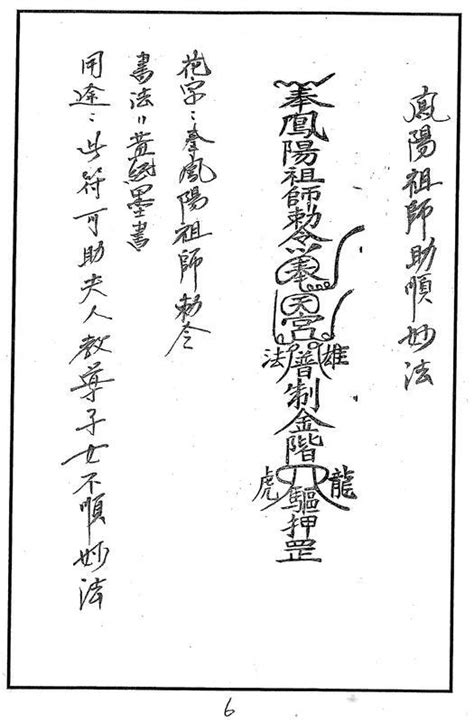 鳳陽祖師助順妙法
奉鳳陽祖師勅令奉天宮普制金階八驅押罡
雄
法
龍
虎
花字：奉鳳陽祖師勅令
書法：黃紙墨書
用途：此符可助夫人教導子女不順妙法
6